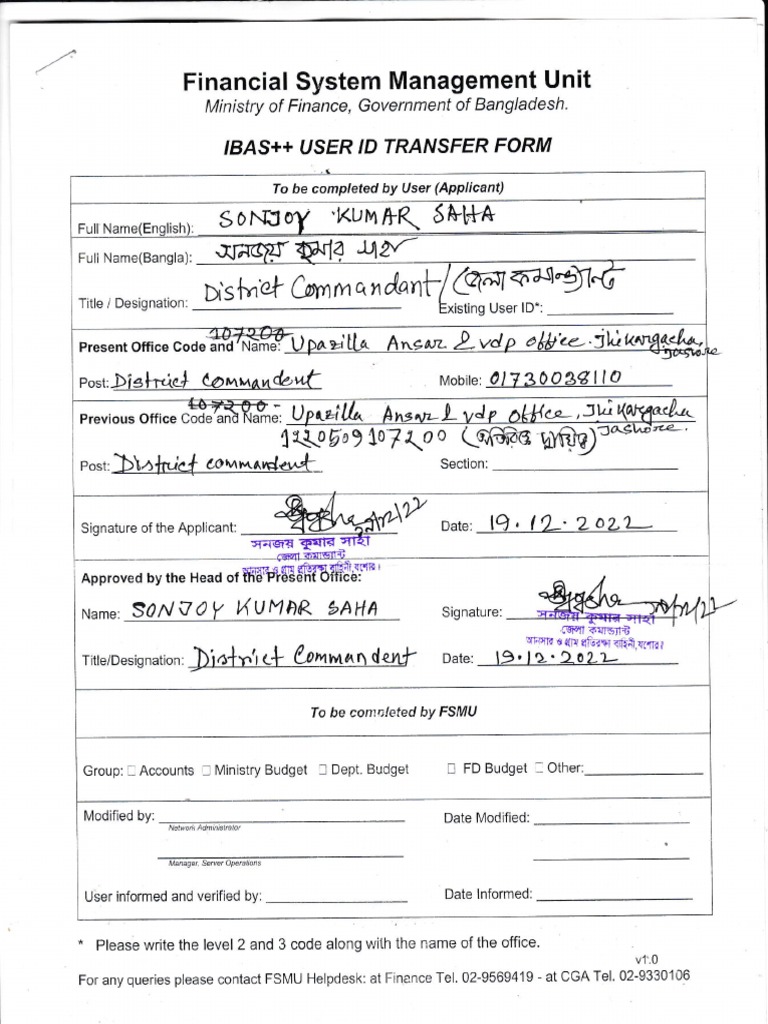 Financial System Management Unit
Ministry of Finance, Government of Bangladesh.
IBAS++ USER ID TRANSFER FORM
To be completed by User (Applicant)
Full Name(English): SONJOY KUMAR SAHA
Full Name(Bangla): সনজয় কুমার সাহা
Title / Designation: District Commandant/(জেলা কমান্ড্যান্ট) Existing User ID*:
107200
Present Office Code and Name: Upazilla Ansar & vdp office. Jhikargacha, Jashore
Post: District commandent Mobile: 01730038110
107200
Previous Office Code and Name: Upazilla Ansar & vdp office, Jhikargacha Jashore.
1220509107200 (অতিরিক্ত দায়িত্ব)
Post: District commandent Section:
Signature of the Applicant: Date: 19.12.2022
সনজয় কুমার সাহা
জেলা কমান্ড্যান্ট
আনসার ও গ্রাম প্রতিরক্ষা বাহিনী, যশোর।
Approved by the Head of the Present Office:
Name: SONJOY KUMAR SAHA Signature:
সনজয় কুমার সাহা
জেলা কমান্ড্যান্ট
আনসার ও গ্রাম প্রতিরক্ষা বাহিনী, যশোর।
Title/Designation: District Commandent Date: 19.12.2022
To be completed by FSMU
Group: □ Accounts □ Ministry Budget □ Dept. Budget □ FD Budget □ Other:
Modified by: Date Modified:
Network Administrator
Manager, Server Operations
User informed and verified by: Date Informed:
* Please write the level 2 and 3 code along with the name of the office.
v1.0
For any queries please contact FSMU Helpdesk: at Finance Tel. 02-9569419 - at CGA Tel. 02-9330106